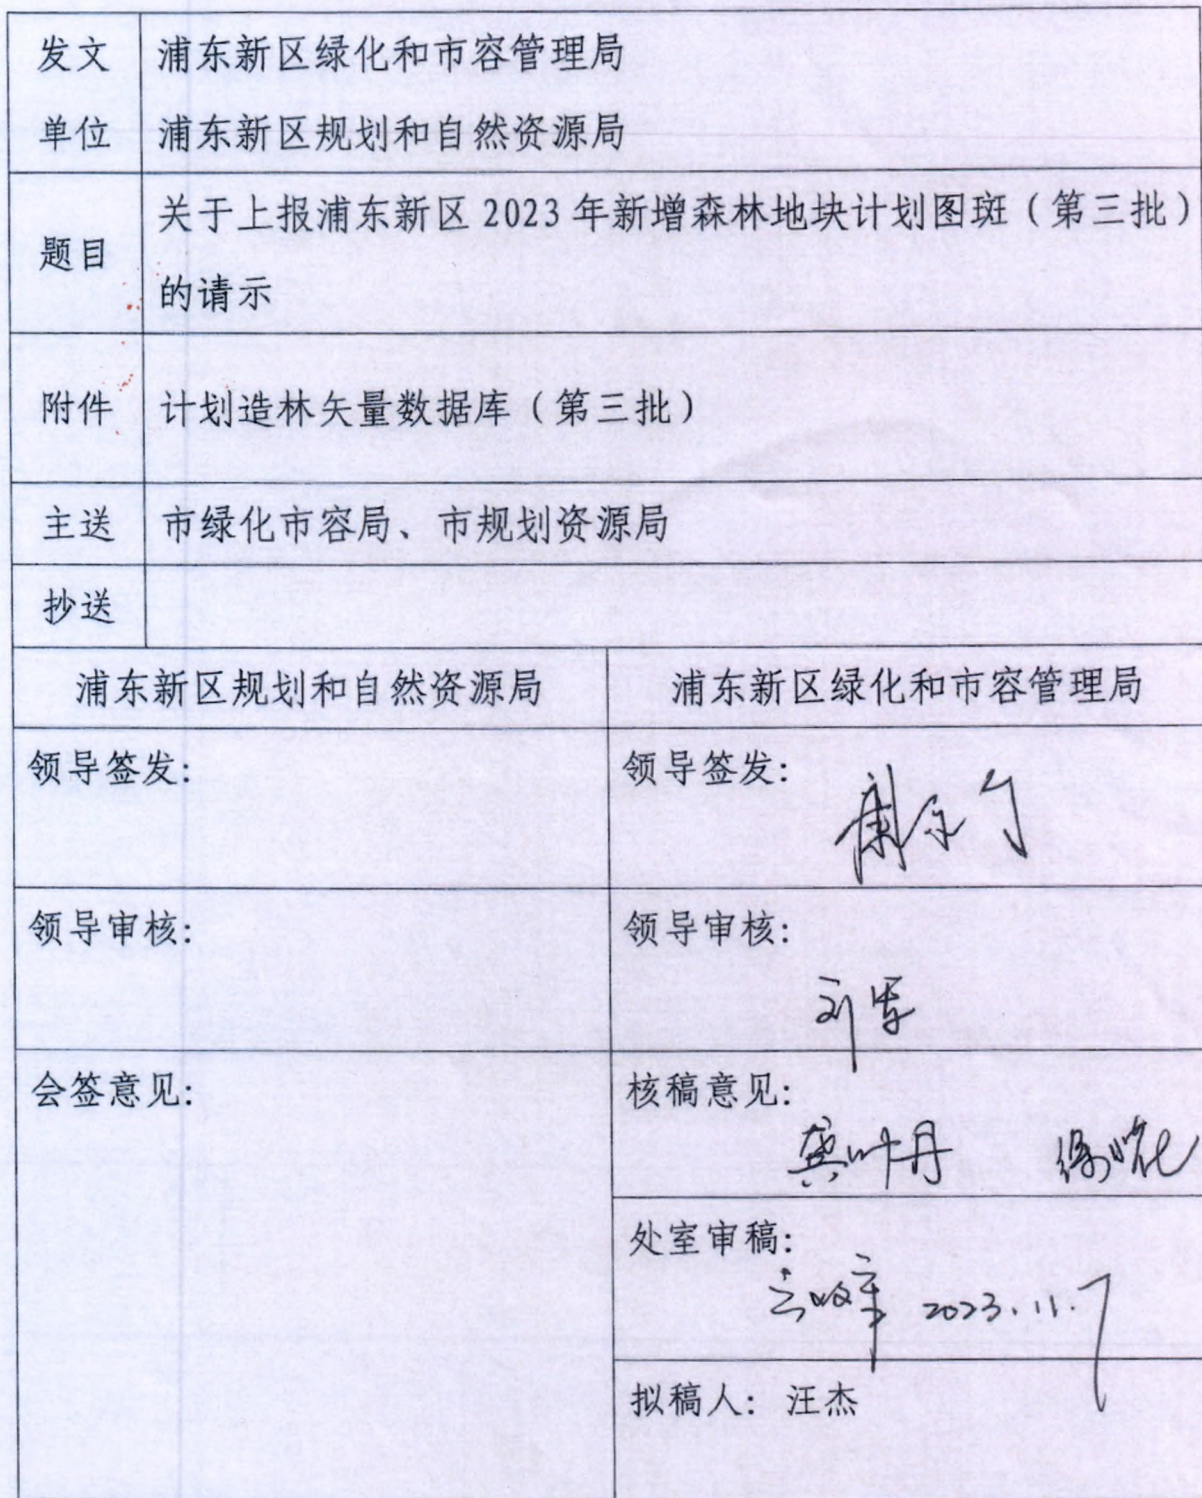 发文 浦东新区绿化和市容管理局
单位 浦东新区规划和自然资源局
题目 关于上报浦东新区 2023 年新增森林地块计划图斑（第三批）
的请示
附件 计划造林矢量数据库（第三批）
主送 市绿化市容局、市规划资源局
抄送
浦东新区规划和自然资源局 浦东新区绿化和市容管理局
领导签发： 领导签发：
领导审核： 领导审核：
刘军
会签意见： 核稿意见：
龚叶丹
处室审稿：
2023.11.7
拟稿人：汪杰